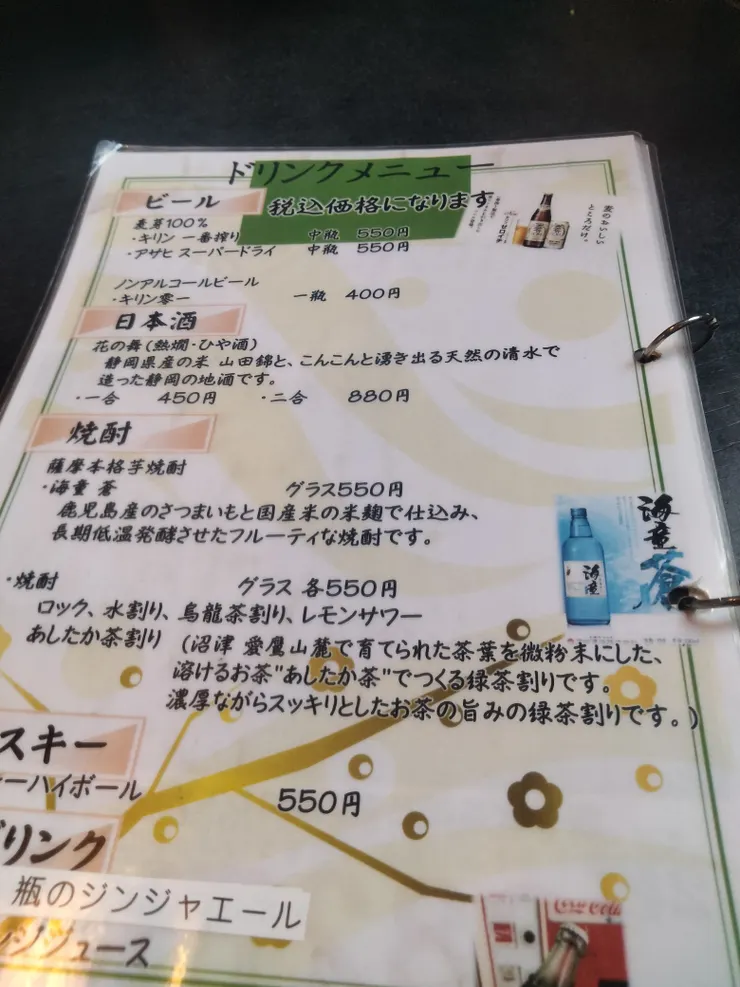 ドリンクメニュー
ビール
税込価格になります
麦芽100%
・キリン 一番搾り 中瓶 550円
・アサヒ スーパードライ 中瓶 550円
麦のおいしい
ところだけ。
ノンアルコールビール
・キリン零一 一瓶 400円
日本酒
花の舞(熱燗・ひや酒)
静岡県産の米 山田錦と、こんこんと湧き出る天然の清水で
造った静岡の地酒です。
・一合 450円 ・二合 880円
焼酎
薩摩本格芋焼酎
・海童 蒼 グラス550円
鹿児島産のさつまいもと国産米の米麹で仕込み、
長期低温発酵させたフルーティな焼酎です。
海童
蒼
海童
・焼酎 グラス 各550円
ロック、水割り、烏龍茶割り、レモンサワー
あしたか茶割り (沼津 愛鷹山麓で育てられた茶葉を微粉末にした、
溶けるお茶"あしたか茶"でつくる緑茶割りです。
濃厚ながらスッキリとしたお茶の旨みの緑茶割りです。)
スキー
ーハイボール 550円
リンク
瓶のジンジャエール
ジュース
Coca-Cola